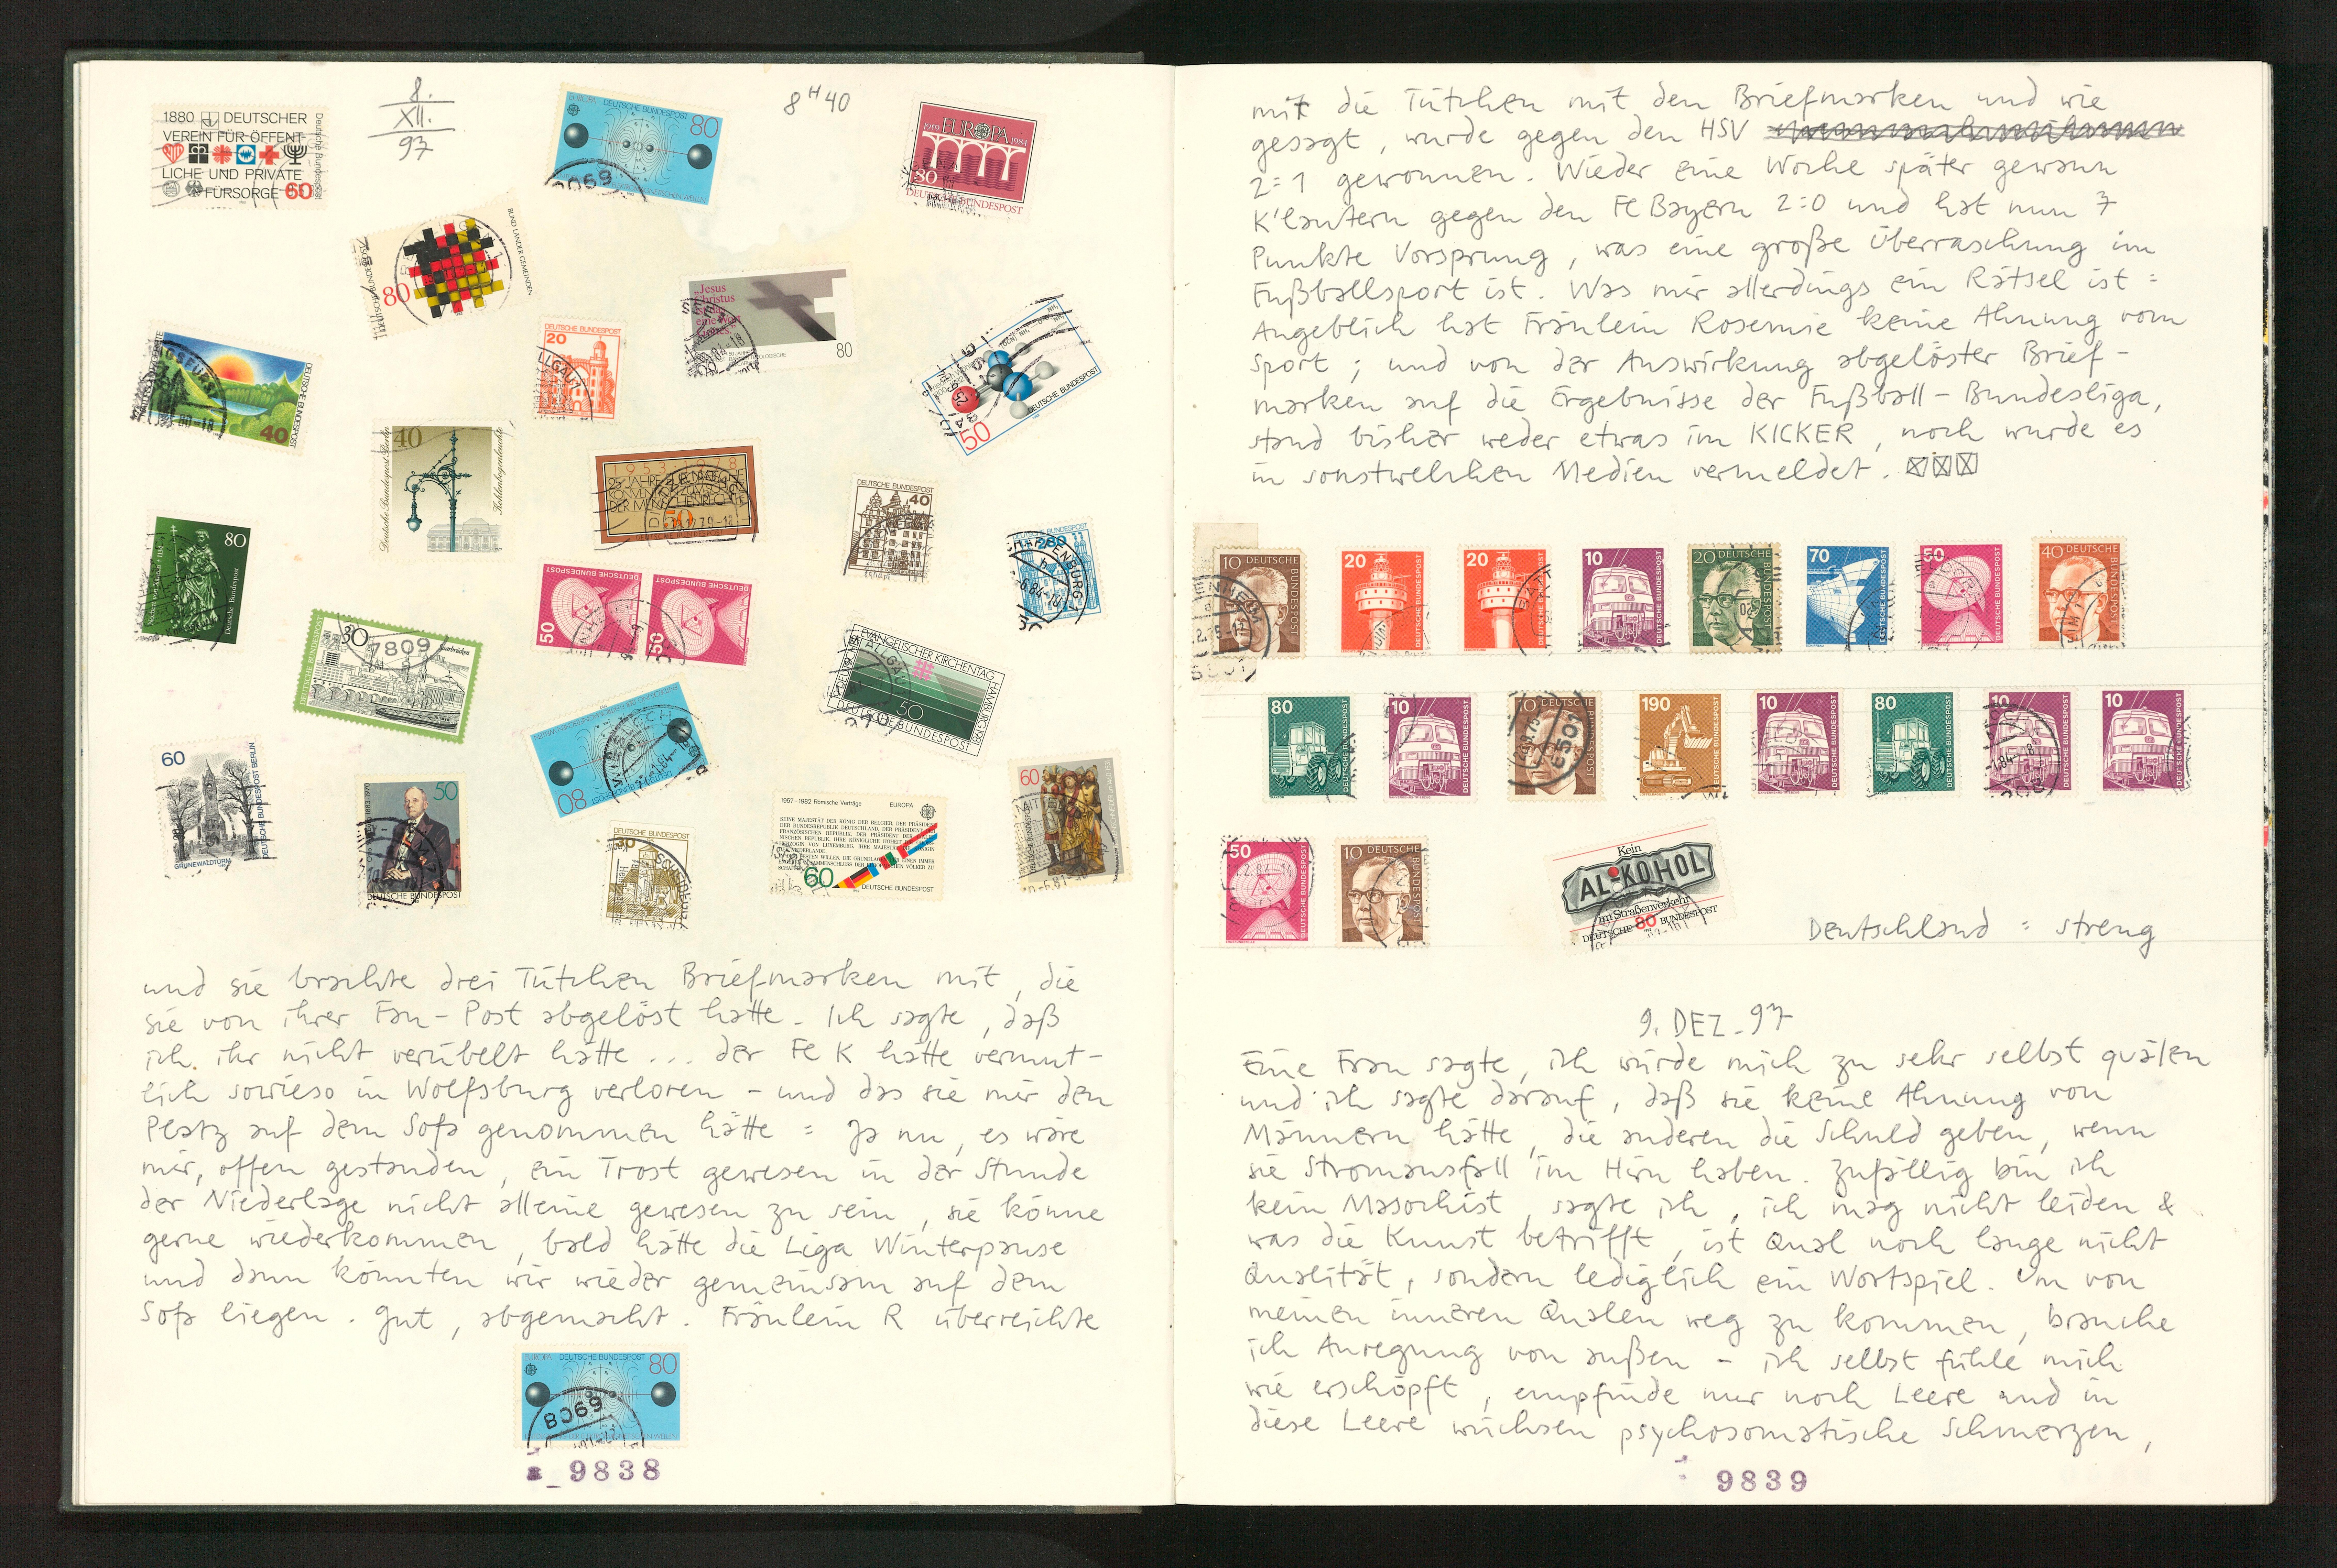 8.
XII.
97
8 H 40
1880 DEUTSCHER
VEREIN FÜR ÖFFENT-
LICHE UND PRIVATE
FÜRSORGE 60
Deutsche Bundespost
EUROPA DEUTSCHE BUNDESPOST 80
8069
EUROPA
1959 1984
80
DEUTSCHE BUNDESPOST
BUND LÄNDER GEMEINDEN
80
DEUTSCHE BUNDESPOST
„Jesus
Christus
80
DEUTSCHE BUNDESPOST
20
DEUTSCHE BUNDESPOST
50
DEUTSCHE BUNDESPOST
40
40
Deutsche Bundespost Berlin
1953 1978
25 JAHRE
KONVENTION
DER MENSCHENRECHTE
50
DEUTSCHE BUNDESPOST
40
DEUTSCHE BUNDESPOST
280
80
Deutsche Bundespost
DEUTSCHE BUNDESPOST
50
DEUTSCHE BUNDESPOST
50
DEUTSCHE BUNDESPOST
30
Saarbrücken
7809
EVANGELISCHER KIRCHENTAG HAMBURG 1981
50
DEUTSCHE BUNDESPOST
60
GRUNEWALDTURM
DEUTSCHE BUNDESPOST BERLIN
50
1883-1970
DEUTSCHE BUNDESPOST
80
DEUTSCHE BUNDESPOST
1957–1982 Römische Verträge EUROPA
60 DEUTSCHE BUNDESPOST
60
und sie brachte drei Tütchen Briefmarken mit, die
sie von ihrer Fan-Post abgelöst hatte. Ich sagte, daß
ich ihr nicht verübelt hätte ... der FcK hätte vermut-
lich sowieso in Wolfsburg verloren – und das sie mir den
Platz auf dem Sofa genommen hätte : Ja nu, es wäre
mir, offen gestanden, ein Trost gewesen in der Stunde
der Niederlage nicht alleine gewesen zu sein, sie könne
gerne wiederkommen, bald hätte die Liga Winterpause
und dann könnten wir wieder gemeinsam auf dem
Sofa liegen. Gut, abgemacht. Fräulein R überreichte
EUROPA DEUTSCHE BUNDESPOST 80
8069
9838
mir die Tütchen mit den Briefmarken und wie
gesagt, wurde gegen den HSV
2:1 gewonnen. Wieder eine Woche später gewann
K'lautern gegen den Fc Bayern 2:0 und hat nun 7
Punkte Vorsprung, was eine große Überraschung im
Fußballsport ist. Was mir allerdings ein Rätsel ist :
Angeblich hat Fräulein Rosemie keine Ahnung vom
Sport ; und von der Auswirkung abgelöster Brief-
marken auf die Ergebnisse der Fußball-Bundesliga,
stand bisher weder etwas im KICKER, noch wurde es
in sonstwelchen Medien vermeldet.
10 DEUTSCHE BUNDESPOST
20 DEUTSCHE BUNDESPOST
20 DEUTSCHE BUNDESPOST
10 DEUTSCHE BUNDESPOST
20 DEUTSCHE BUNDESPOST
70 DEUTSCHE BUNDESPOST
50 DEUTSCHE BUNDESPOST
40 DEUTSCHE BUNDESPOST
80 DEUTSCHE BUNDESPOST
10 DEUTSCHE BUNDESPOST
10 DEUTSCHE BUNDESPOST
190 DEUTSCHE BUNDESPOST
10 DEUTSCHE BUNDESPOST
80 DEUTSCHE BUNDESPOST
10 DEUTSCHE BUNDESPOST
10 DEUTSCHE BUNDESPOST
50 DEUTSCHE BUNDESPOST
10 DEUTSCHE BUNDESPOST
Kein
ALKOHOL
im Straßenverkehr
DEUTSCHE 80 BUNDESPOST
Deutschland : streng
9. DEZ. 97
Eine Frau sagte, ich würde mich zu sehr selbst quälen
und ich sagte darauf, daß sie keine Ahnung von
Männern hätte, die anderen die Schuld geben, wenn
sie Stromausfall im Hirn haben. Zufällig bin ich
kein Masochist, sagte ich, ich mag nicht leiden &
was die Kunst betrifft, ist Qual noch lange nicht
Qualität, sondern lediglich ein Wortspiel. Um von
meinen inneren Qualen weg zu kommen, brauche
ich Anregung von außen – ich selbst fühle mich
wie erschöpft, empfinde nur noch Leere und in
diese Leere wüchsen psychosomatische Schmerzen,
9839